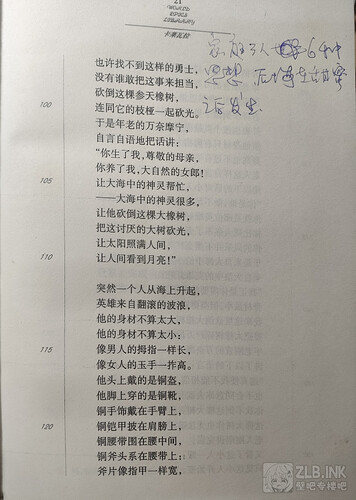 21
WORLDS
EPICS
LIBRARY
卡莱瓦拉
也许找不到这样的勇士，
没有谁敢把这事来担当，
砍倒这棵参天橡树，
100
连同它的枝桠一起砍光。
于是年老的万奈摩宁，
自言自语地把话讲：
“你生了我，尊敬的母亲，
你养了我，大自然的女郎！
105
让大海中的神灵帮忙，
——大海中的神灵很多，
让他砍倒这棵大橡树，
把这讨厌的大树砍光，
让太阳照满人间，
110
让人间看到月亮！”
突然一个人从海上升起，
英雄来自翻滚的波浪，
他的身材不算太大，
他的身材不算太小：
115
像男人的拇指一样长，
像女人的玉手一拃高。
他头上戴的是铜盔，
他脚上穿的是铜靴，
铜手饰戴在手臂上，
120
铜铠甲披在肩膀上，
铜腰带围在腰中间，
铜斧头系在腰带上：
斧片像指甲一样宽，
思想
之后发生
ZLB.INK
壁吧专楼吧